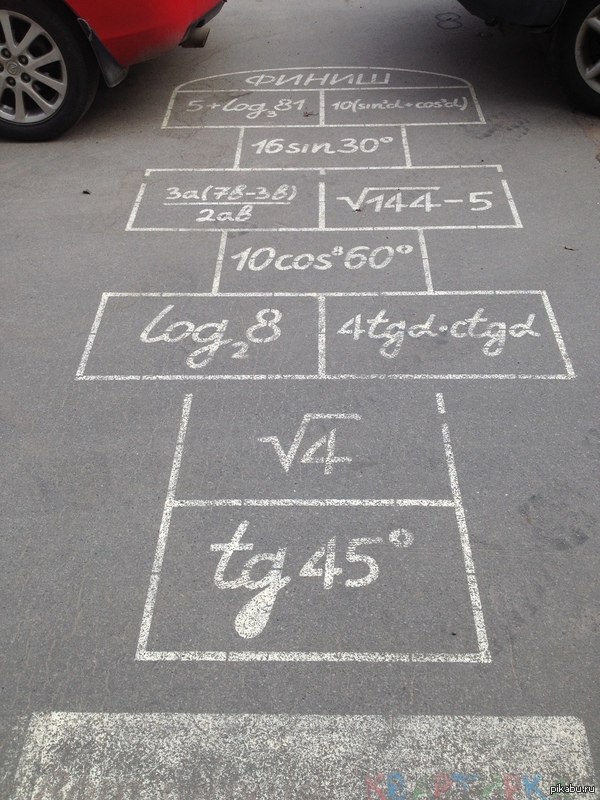 ФИНИШ
5+log₃81 10(sin²α+cos²α)
16sin30°
3a(7в-3в)
2ав
√144-5
10cos⁸60°
log₂8 4tgα·ctgα
√4
tg45°
pikabu.ru